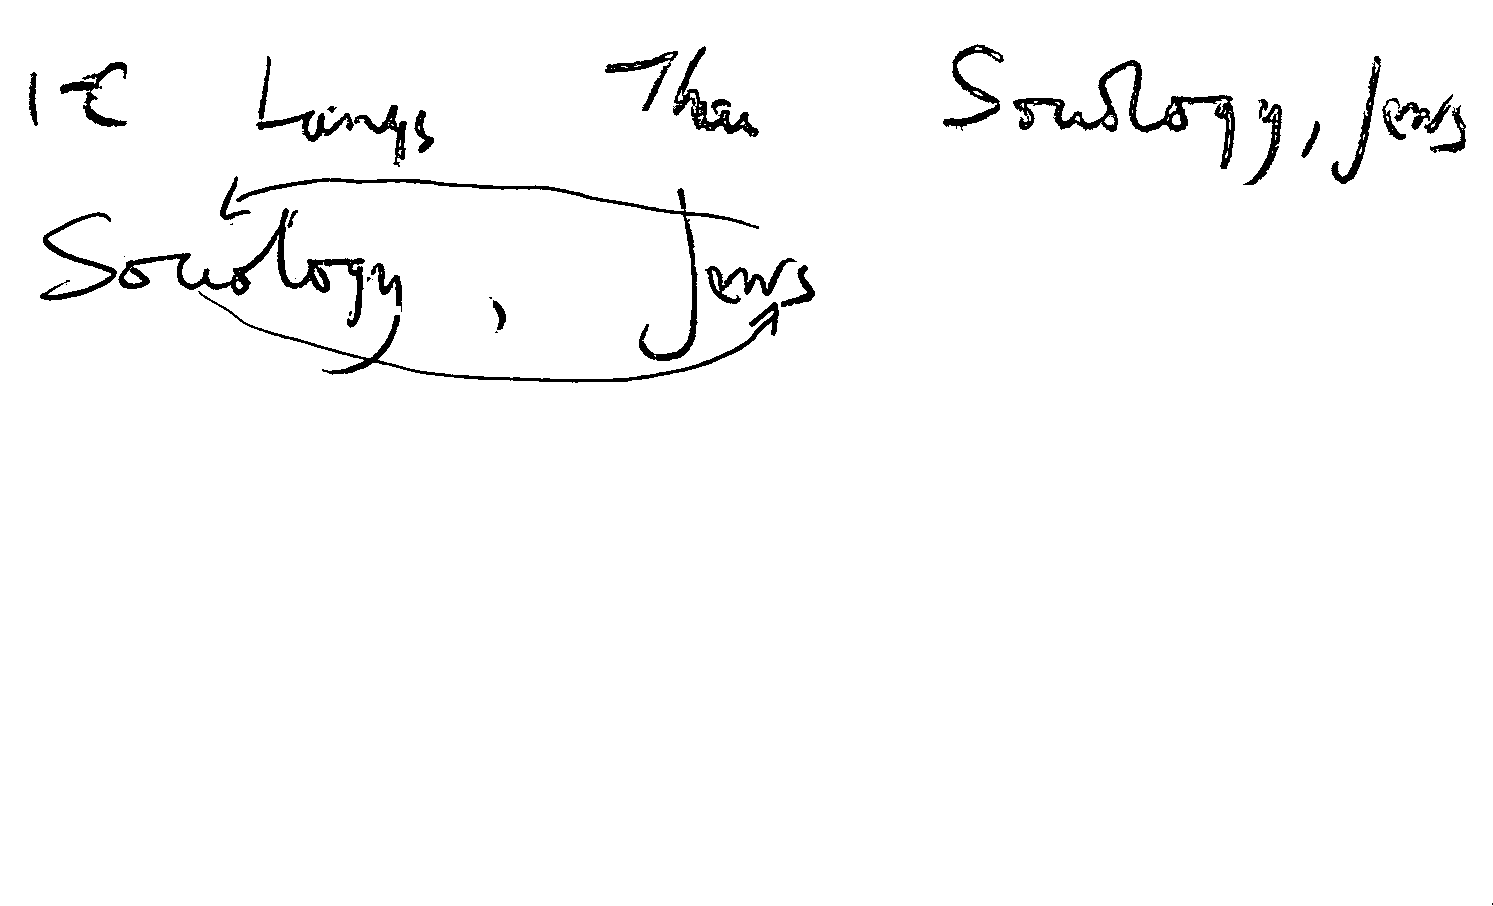 IE Langs Thes Sociology, Jews
Sociology, Jews